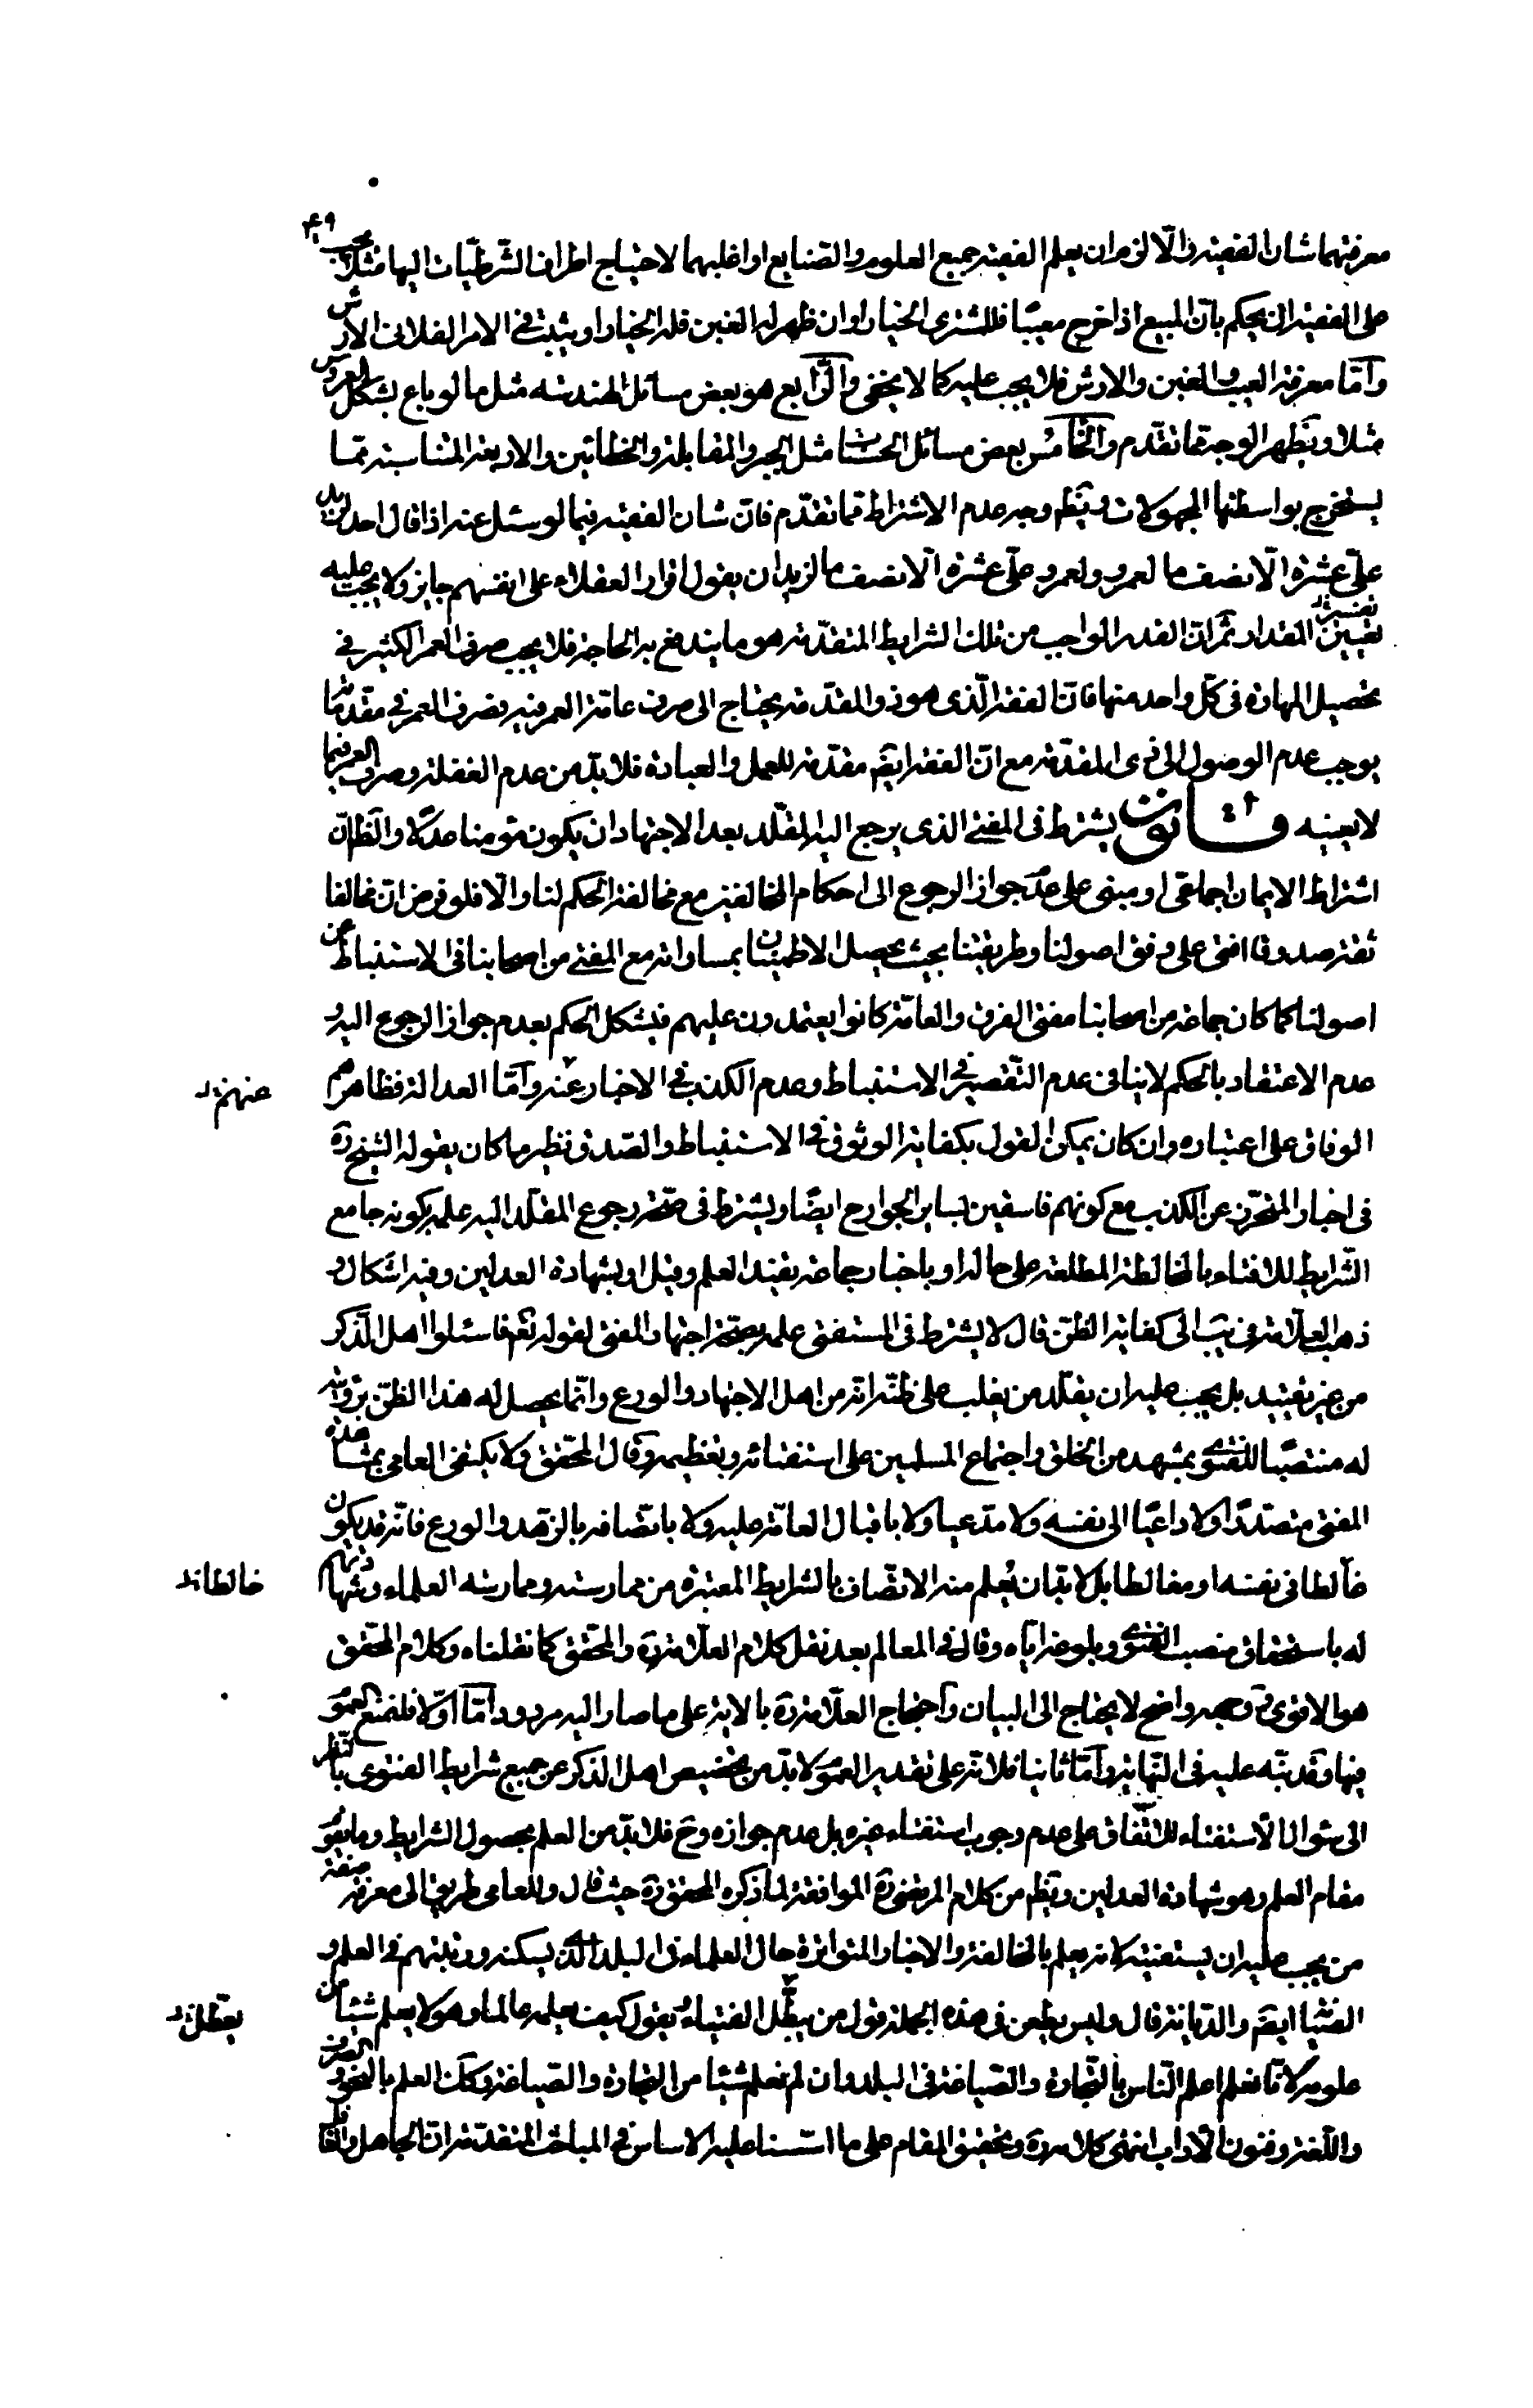 معرفتهما شان الفقيه والّا لزم ان يعلم الفقيه جميع العلوم والصّنايع او اغلبهما لاحتياج اطراف الشّرطيّات اليها مثلا يجب
على الفقيه ان يحكم بانّ المبيع اذا خرج معيبًا فللمشترى الخيار او ان ظهر له الغبن فله الخيار او يثبت فى الامر الفلانى الارش
وامّا معرفة العيب والغبن والارش فلا يجب عليه كما لا يخفى والرّابع هو بعض مسائل الهندسه مثل ما لو باع بشكل العروس
مثلا ويظهر الوجه مما تقدّم والخامس بعض مسائل الحساب مثل الجبر والمقابلة والخطائين والاربعة المتناسبة ممّا
يستخرج بواسطتها المجهولات ويظهر وجه عدم الاشتراط مما تقدّم فانّ شان الفقيه فيما لو سئل عنه اذا قال احد لزيد
علىّ عشرة الّا نصف ما لعمرو ولعمرو علىّ عشرة الّا نصف ما لزيد ان يقول اقرار العقلاء على انفسهم جايز ولا يجب عليه
تعيين المقدار ثم انّ القدر الواجب من تلك الشرايط المتقدّمة هو ما يندفع به الحاجة فلا يجب صرف العمر الكثير فى
تحصيل المهارة فى كلّ واحد منها فانّ الفقه الّذى هو ذو المقدّمة يحتاج الى صرف عامّة العمر فيه فصرف العمر فى مقدماته
يوجب عدم الوصول الى ذى المقدّمة مع انّ الفقه ايضم مقدّمة للعمل والعبادة فلا بدّ من عدم الغفلة وصرف العمر فيما
لا يعينه قانون يشترط فى المفتى الذى يرجع اليه المقلّد بعد الاجتهاد ان يكون مؤمنا عدلا والظّ انّ
اشتراط الايمان اجماعىّ او مبنى على عدم جواز الرجوع الى احكام المخالفين مع مخالفة الحكم لنا والّا فلو فرض انّ مخالفا
ثقة صدوقا افتى على وفق اصولنا وطريقتنا بحيث يحصل الاطمينان بمساواته مع المفتى من اصحابنا فى الاستنباط عن
اصولنا كما كان جماعة من اصحابنا مفتى الفرق والعامّة كانوا يعتمدون عليهم فيشكل الحكم بعدم جواز الرجوع اليه و
عدم الاعتقاد بالحكم لا ينافى عدم التّقصير فى الاستنباط وعدم الكذب فى الاخبار عنه وامّا العدالة فظاهرهم
عنهم
الوفاق على اعتباره وان كان يمكن القول بكفاية الوثوق فى الاستنباط والصّدق نظير ما كان يقوله الشيخ ره
فى اخبار المتحرّز عن الكذب مع كونهم فاسقين بساير الجوارح ايضًا ويشترط فى صحّة رجوع المقلّد اليه علمه بكونه جامع
الشّرايط للافتاء بالمخالطة المطلعة على حاله او باخبار جماعة يفيد العلم وقيل او بشهادة العدلين وفيه اشكال و
ذهب العلّامة فى يب الى كفاية الظنّ قال لا يشترط فى المستفتى علمه بصحّة اجتهاد المفتى لقوله تعم فاسئلوا اهل الذّكر
من غير تقييد بل يجب عليه ان يقلّد من يغلب على ظنّه انّه من اهل الاجتهاد والورع وانّما يحصل له هذا الظنّ برؤيته
له منتصبًا للفتوى بمشهد من الخلق واجتماع المسلمين على استفتائه وتعظيمه وقال المحقّق ولا يكتفى العامى بمشاهدة
المفتى متصدّرًا ولا داعيًا الى نفسه ولا مدّعيا ولا باقبال العامّة عليه ولا باتّصافه بالزّهد والورع فانّه قد يكون
غالطا فى نفسه او مغالطا بل لا بدّ ان يُعلم منه الاتّصاف بالشرايط المعتبرة من ممارسته وممارسه العلماء وشهادتهم
غالطا
له باستحقاق منصب الفتوى وبلوغه ايّاه وقال فى المعالم بعد نقل كلام العلّامة ره والمحقّق كما نقلناه وكلام المحقّق
هو الاقوى ووجهه واضح لا يحتاج الى البيان واحتجاج العلّامة ره بالاية على ما صار اليه مردود امّا اوّلا فلمنع العموم
فيها وقد نبّه عليه فى النّهاية وامّا ثانيا فلانّه على تقدير العموم لا بدّ من تخصيص اهل الذكر عن جمع شرايط الفتوى بالنّظر
الى سؤال الاستفتاء للاتّفاق على عدم وجوب استفتاء غيره بل عدم جوازه وح فلا بدّ من العلم بحصول الشرايط وما يقوم
مقام العلم وهو شهادة العدلين ويظهر من كلام المرتضى ره الموافقة لما ذكره المحقق ره حيث قال وللعامى طريق الى معرفة صفة
من يجب عليه ان يستفتيه لانه يعلم بالمخالطة والاخبار المتواترة حال العلماء فى البلد الّذى يسكنه ورتبتهم فى العلم و
الفتيا ايضم والدّيانة قال وليس يطعن فى هذه الجملة قول من يبطل الفتياء بقول كيف يعلمه عالما وهو لا يعلم شيئا من
علومه لانّا نعلم اعلم النّاس بالتّجارة والصّياغة فى البلد وان لم نعلم شيئا من التجارة والصّياغة وكذا العلم بالنحو و
واللّغة وفنون الاداب انتهى كلامه ره وتحقيق المقام على ما اسّسنا عليه الاساس فى المباحث المتقدّمة انّ الجاهل والغافل